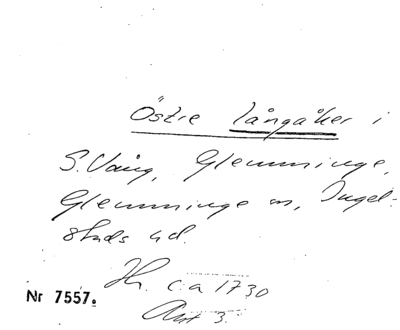 Östre långåker i
S. Vång, Glemminge,
Glemminge sn, Ingel-
stads hd.
Hh. ca 1730
Nr 7557.
Akt 3.